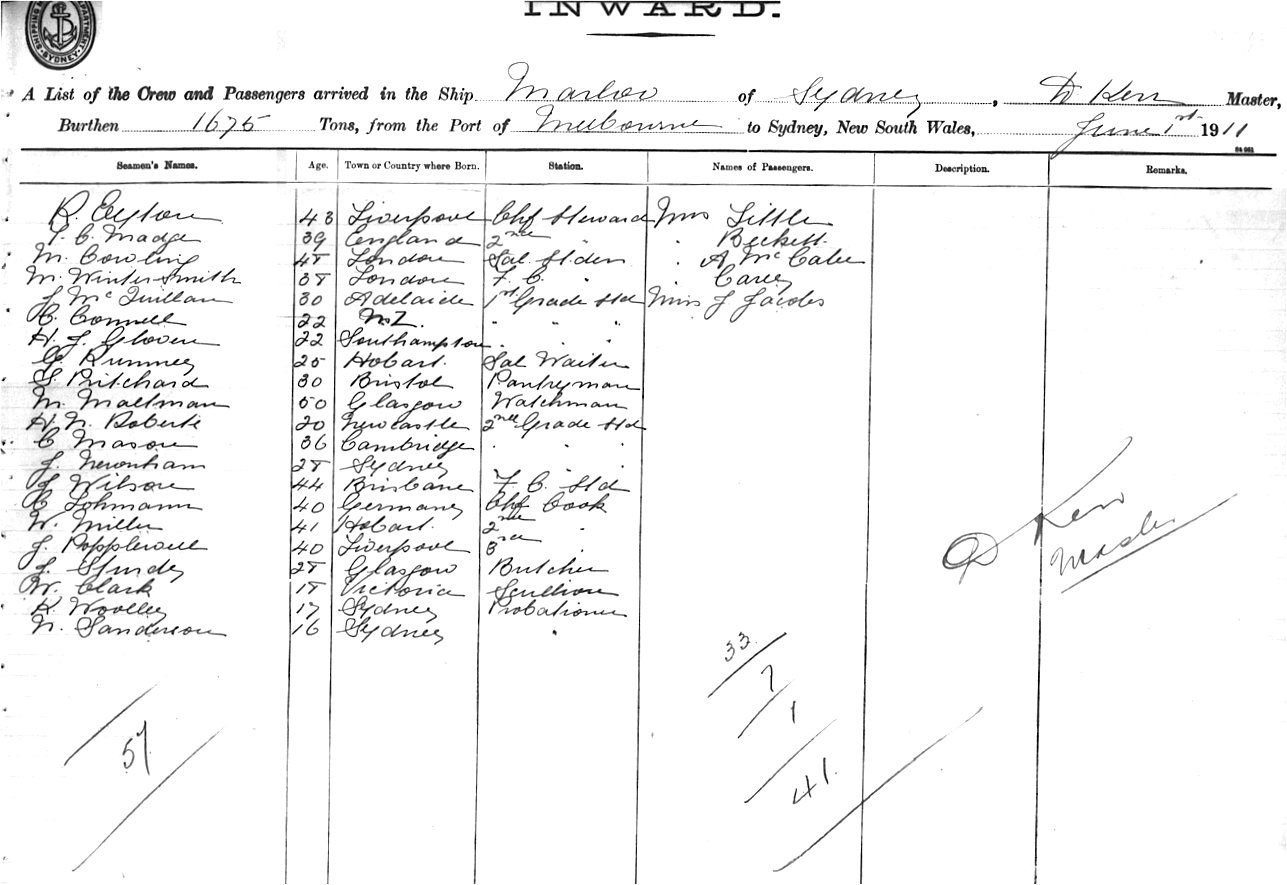 SHIPPING DEPARTMENT SYDNEY
INWARD.
A List of the Crew and Passengers arrived in the Ship Marloo of Sydney, D Kerr Master,
Burthen 1675 Tons, from the Port of Melbourne to Sydney, New South Wales, June 1st 1911
Seamen's Names. Age. Town or Country where Born. Station. Names of Passengers. Description. Remarks.
R. Eyton 43 Liverpool Chf Steward Mrs Little
P. C. Madge 39 England 2nd " Beckett
M. Cowling 48 London Sal Stdess " A McCabe
M. Winter-Smith 38 London F. C. " " Carey
J. McQuillan 30 Adelaide 1st Grade Std Miss J Jacobs
C. Connell 22 N.Z. " " "
H. J. Glover 22 Southampton " " "
G. Rumney 25 Hobart. Sal Waiter
S. Pritchard 30 Bristol Pantryman
M. Maltman 50 Glasgow Watchman
H. N. Roberts 20 Newcastle 2nd Grade Std
C Mason 36 Cambridge " " "
J. Newnham 28 Sydney " " "
J Wilson 44 Brisbane F. C. Std
C Lohmann 40 Germany Chf Cook
W. Miller 41 Hobart. 2nd "
J. Popplewell 40 Liverpool 3rd "
J. Sturdy 28 Glasgow Butcher
W. Clark 18 Victoria Scullion
K Woolley 17 Sydney Probationer
N. Sanderson 16 Sydney "
D Kerr
Master
33
7
1
41.
57